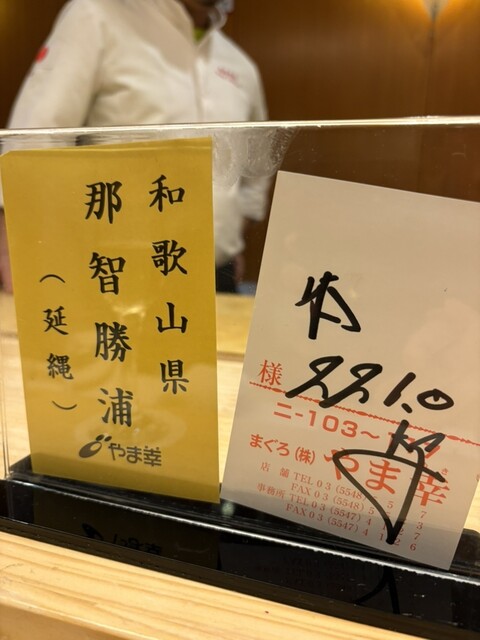 和歌山県
那智勝浦
（延縄）
やま幸
様
221.0
ニ-103～
まぐろ（株）やま幸
店舗 TEL 03（5548）5
FAX 03（5548）5
事務所 TEL 03（5547）4
FAX 03（5547）4